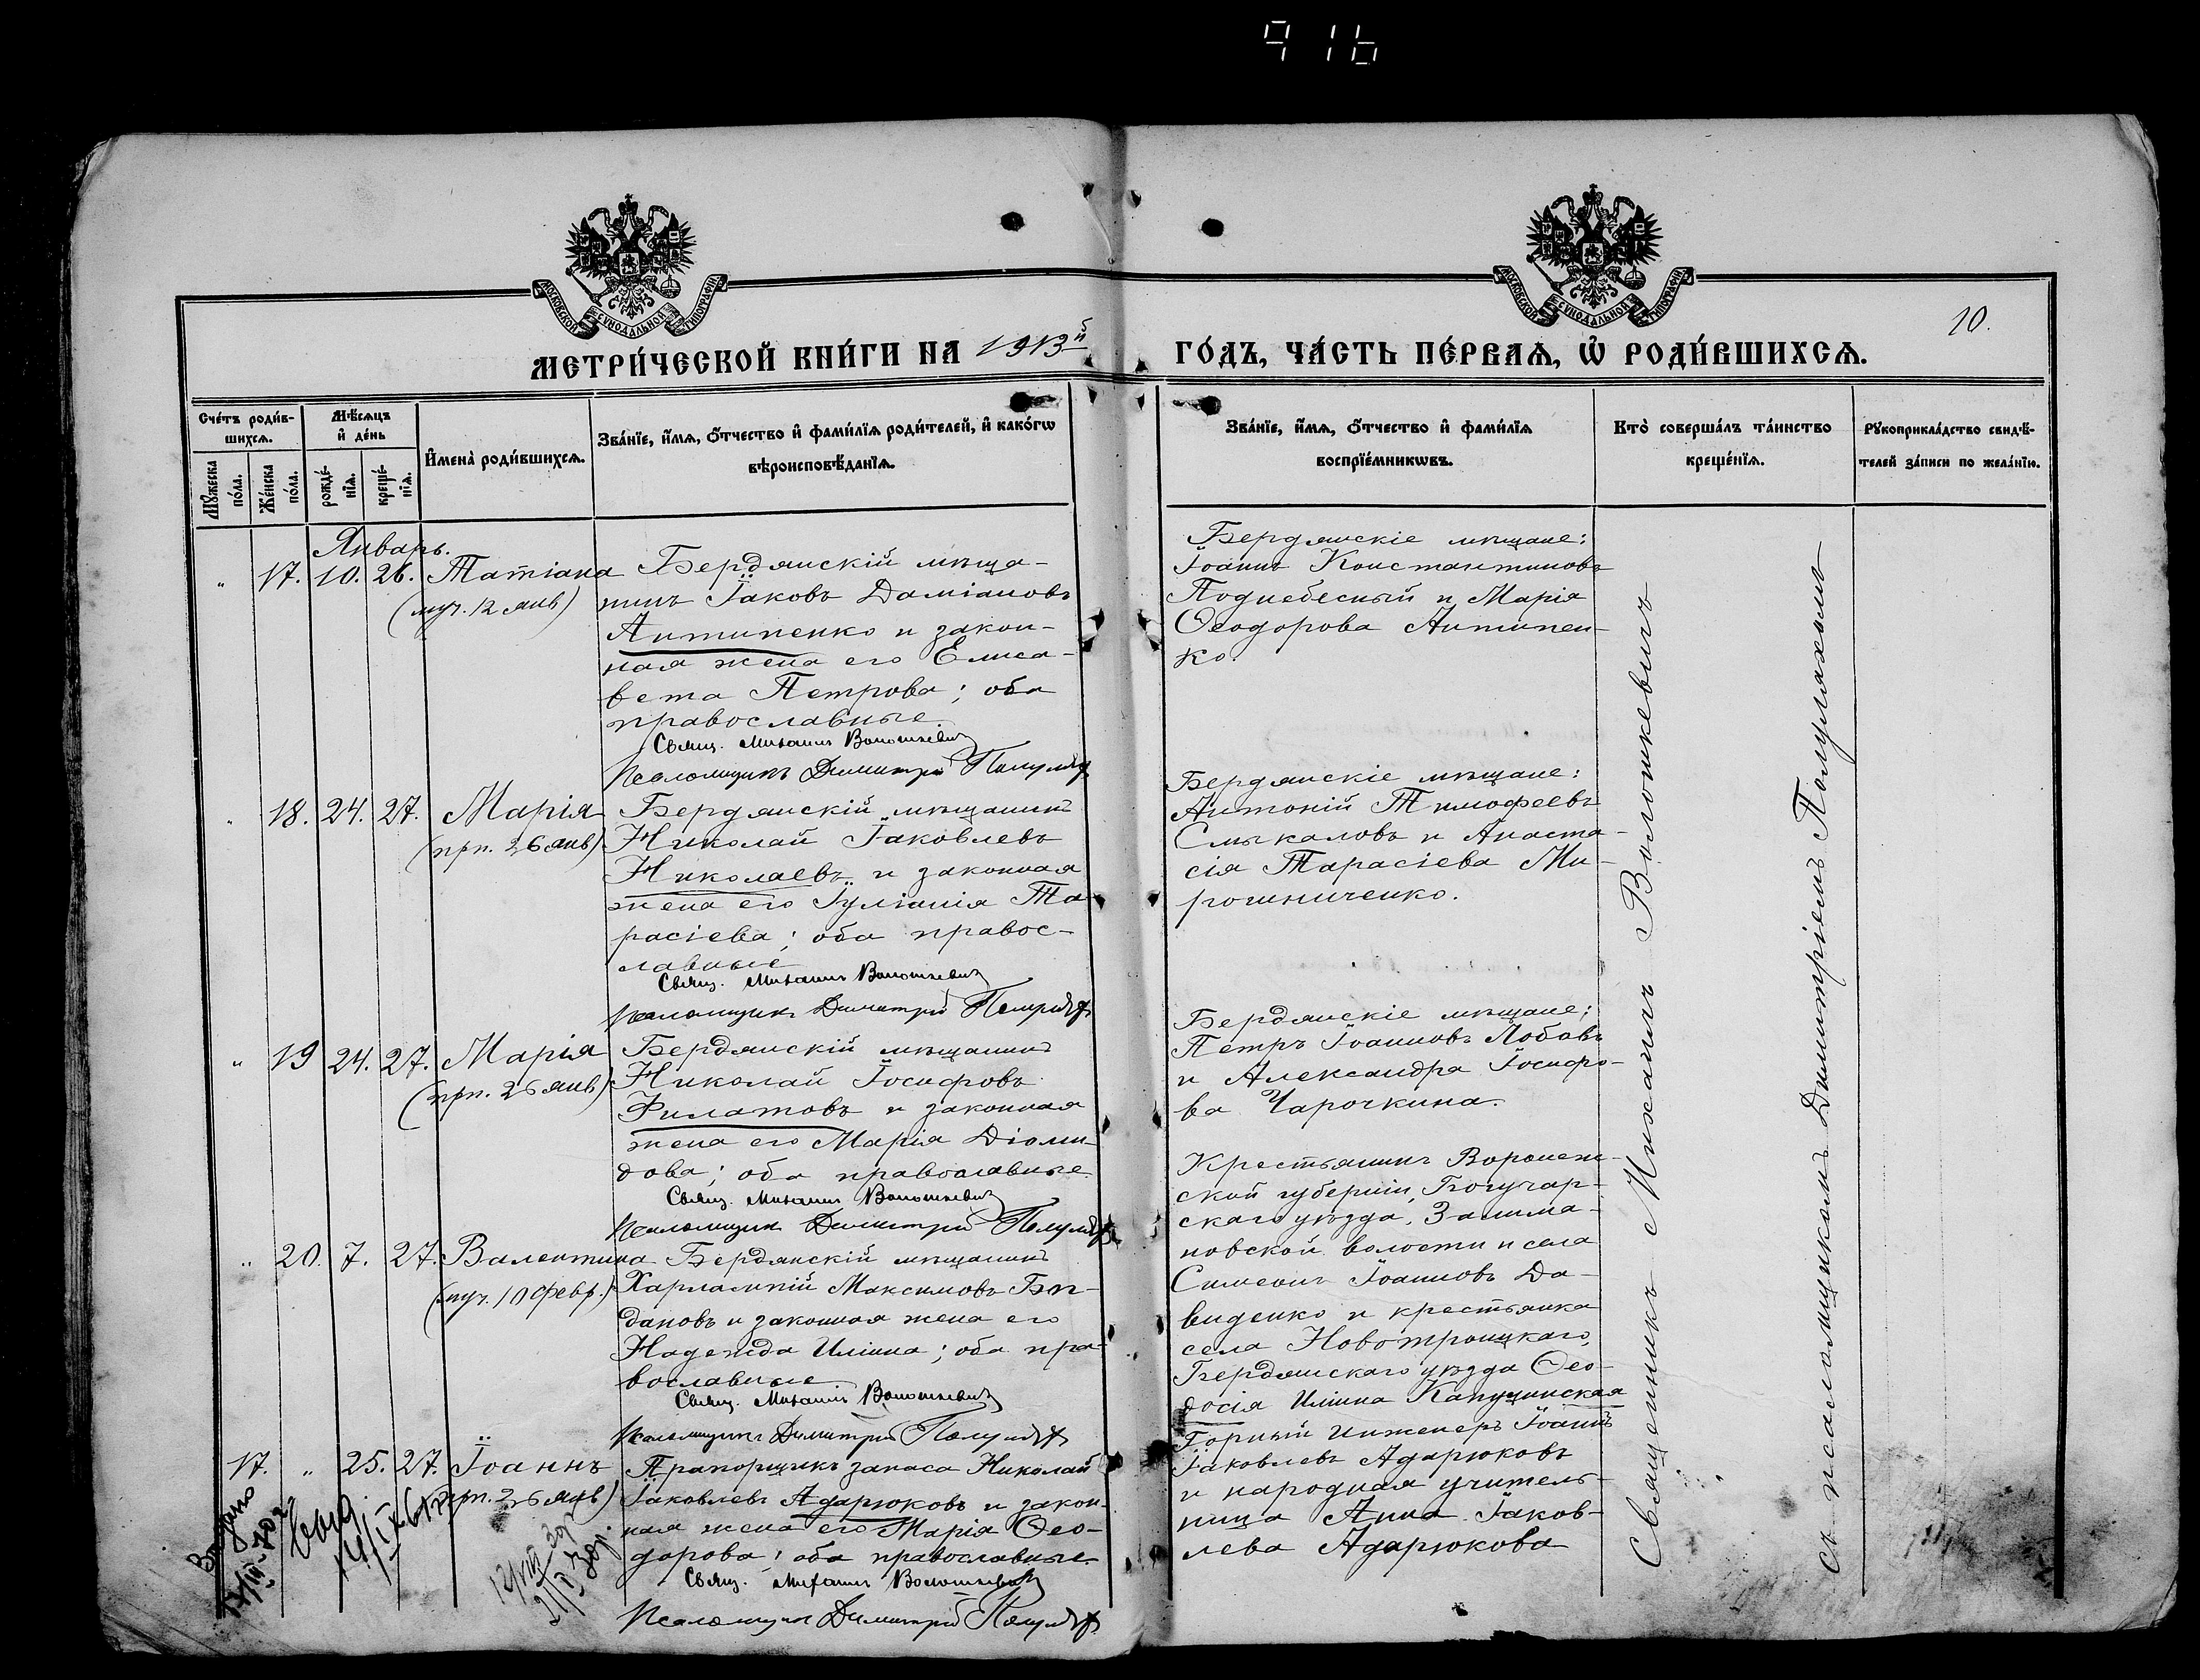 916
МОСКОВСКОЙ СУНОДАЛЬНОЙ ТИПОГРАФІИ.
МОСКОВСКОЙ СУНОДАЛЬНОЙ ТИПОГРАФІИ.
10.
МЕТРИ́ЧЕСКОЙ КНИ́ГИ НА 1913й ГО́ДЪ, ЧА́СТЬ ПЕ́РВАѦ, Ѡ҆ РОДИ́ВШИХСѦ.
Сче́тъ роди́в-
шихсѧ.
Мѣ́сѧцъ
и҆ де́нь
Мꙋ́жеска по́ла.
Же́нска по́ла.
рожде́-
нїѧ.
креще́-
нїѧ.
И҆мена̀ роди́вшихсѧ.
Зва́нїе, и҆́мѧ, ѻ҆́тчество и҆ фами́лїѧ роди́телей, и҆ како́гѡ
вѣроисповѣ́данїѧ.
Зва́нїе, и҆́мѧ, ѻ҆́тчество и҆ фами́лїѧ
воспрїе́мникѡвъ.
Кто̀ соверша́лъ та́инство
креще́нїѧ.
Рꙋкоприкла́дство свидѣ́-
телей за́писи по жела́нїю.
Январь.
" 17. 10. 26. Татіана
(муч. 12 янв)
Бердянскій мѣща-
нинъ Іаковъ Даміановъ
Антипенко и закон-
ная жена его Елиса-
вета Петрова; оба
православные.
Свящ. Михаилъ Волошкевич
Псаломщикъ Димитрій
Бердянскіе мѣщане:
Іоаннъ Константиновъ
Поднебесный и Марія
Ѳеодорова Антипен-
ко.
" 18. 24. 27. Марія
(прп. 26 янв)
Бердянскій мѣщанинъ
Николай Іаковлевъ
Николаевъ и законная
жена его Іуліанія Та-
расіева; оба правос-
лавные
Свящ. Михаилъ Волошкевич
Псаломщикъ Димитрій
Бердянскіе мѣщане:
Антоній Тимофеевъ
Смыкаловъ и Анаста-
сія Тарасіева Ми-
рошниченко.
" 19 24. 27. Марія
(прп. 26 янв)
Бердянскій мѣщанинъ
Николай Іосифовъ
Филатовъ и законная
жена его Марія Діоми-
дова; оба православные
Свящ. Михаилъ Волошкевич
Псаломщикъ Димитрій
Бердянскіе мѣщане:
Петръ Іоанновъ Лобовъ
и Александра Іосифо-
ва Чарочкина.
" 20. 7. 27. Валентина
(муч. 10 февр.)
Бердянскій мѣщанинъ
Харлампій Максимовъ Бог-
дановъ и законная жена его
Надежда Иліина; оба пра-
вославные
Свящ. Михаилъ Волошкевич
Псаломщикъ Димитрій
Крестьянинъ Воронеж-
ской губерніи, Богучар-
скаго уѣзда, Залима-
новской волости и села
Симеонъ Іоанновъ Да-
виденко и крестьянка
села Новотроицкаго,
Бердянскаго уѣзда Ѳео-
досія Иліина Капущинская
17. " 25. 27. Іоаннъ
(прп. 26 янв)
Прапорщикъ запаса Николай
Іаковлевъ Адарюковъ и закон-
ная жена его Марія Ѳео-
дорова; оба православные.
Свящ. Михаилъ Волошкевич
Псаломщикъ Димитрій
Горный инженеръ Іоаннъ
Іаковлевъ Адарюковъ
и народная учитель-
ница Анна Іаков-
лева Адарюкова
Священникъ Михаилъ Волошкевичъ
съ псаломщикомъ Димитріемъ Полуляхомъ